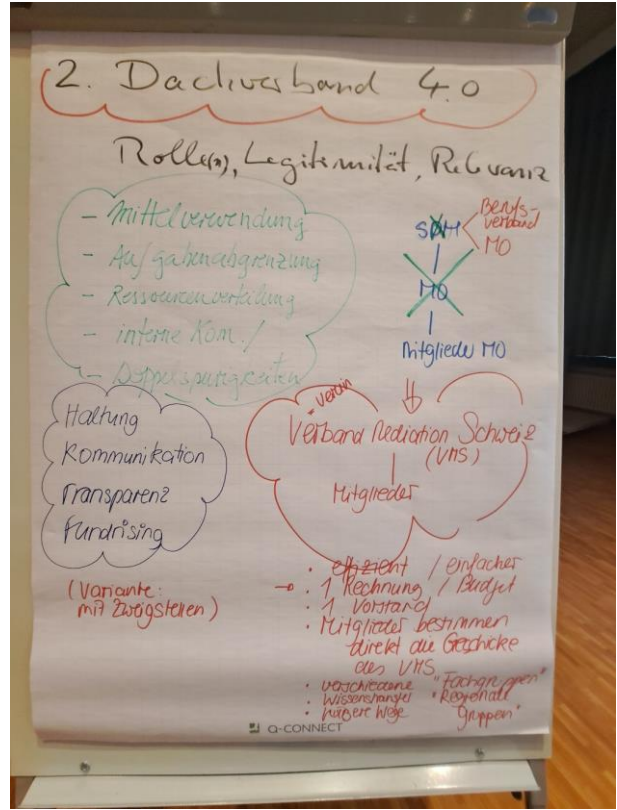 2. Dachverband 4.0
Rolle(n), Legitimität, Relevanz
- Mittelverwendung
- Aufgabenabgrenzung
- Ressourcenverteilung
- interne Kom. /
- Doppelspurigkeiten
SDM
Berufs-
verband
MO
MO
Mitglieder MO
Haltung
Kommunikation
Transparenz
Fundrising
(Variante:
mit Zweigstellen)
Verein
Verband Mediation Schweiz
(VMS)
Mitglieder
· effizient / einfacher
→ · 1 Rechnung / Budget
· 1 Vorstand
· Mitglieder bestimmen
direkt die Geschicke
des VMS
· verschiedene "Fachgruppen"
· Wissenstransfer "Regionale
· kürzere Wege Gruppen"
Q-CONNECT